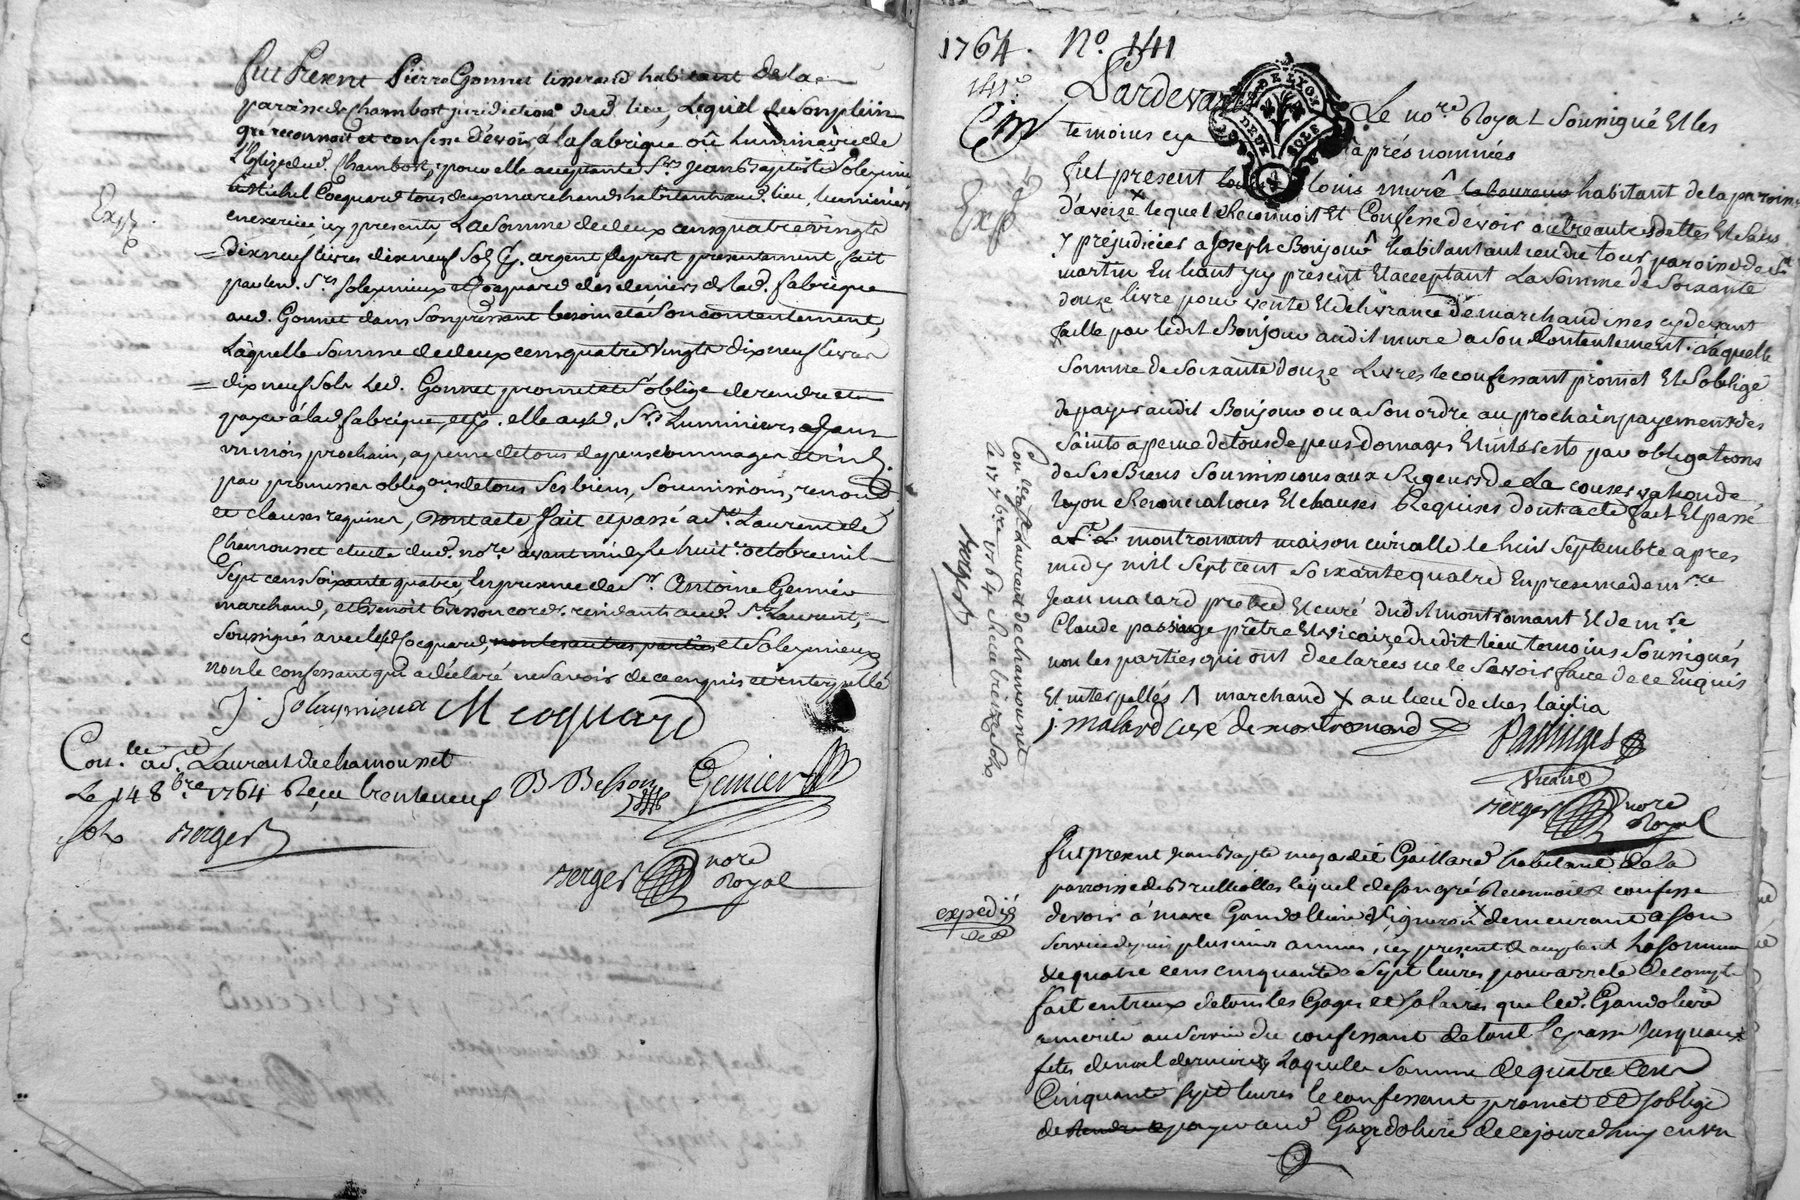 fut Present Pierre Gonnet tisserand habitant de la
paroisse de Chambost juridiction dud. lieu, Lequel de son plein
gré reconnoit et confesse devoir a la fabrique où Luminaire de
l'Eglize dud. Chambost, pour elle acceptants Srs Jean Baptiste Soleymieu
Michel Cocquard tous deux marchands habitants aud. lieu, Luminiers
en exercice icy presents, La somme de deux cens quatre vingts
= Dix neuf livres dix neuf sols argent de prest presentement fait
par led. Srs Soleymieux et Cocquard des deniers de lad. fabrique
aud. Gonnet dans son pressant besoin et à son contentement,
Laquelle somme de deux cens quatre vingts dix neuf livres
= dix neuf sols led. Gonnet promet et s'oblige de rendre et
payer à lad. fabrique, et p. elle auxd. Srs Luminiers dans
un mois prochain, a peine de tous depens dommages et int.
par promesses obligons de tous ses biens, soumissions, renonc.
et clauses requises, Dont acte, fait et passé a St. Laurent de
Chamousset etude dud. nore avant midy le huit octobre mil
Sept cens soixante quatre, En presence de Sr. Antoine Genier
marchand, et Benoit Besson cord. residants aud. St. Laurent,
Soussignés avec led. Cocquard, non les autres parties et Soleymieux
non le confessant qui a déclaré ne savoir de ce enquis et interpellé
Exp.
J. Soleymieux M cocquard
Con.lée a St. Laurent de chamousset
Le 14 8bre 1764 Reçu trente neuf B. Besson Genier
sols Berger
Berger nore
Royal
1764. No. 141
141e
Pardevant Le nore Royal Soussigné Et les
temoins cy après nommés
DE LYON
DEUX SOLS
Exp
fut present louis muré laboureur habitant de la paroisse
d'aveize x lequel Reconnoit Et Confesse devoir autre autres dettes Et sans
y préjudicier a Joseph Bonjour ^ habitant au lieu du tour paroisse de St
martin En haut icy present Et acceptant La Somme de Soixante
douze livre pour vente Et delivrance de marchandises cy devant
faitte par ledit Bonjour audit mure a Son Contentement. Laquelle
Somme de Soixante douze Livres le confessant promet Et S'oblige
de payer audit Bonjour ou a Son ordre au prochain payement des
Saints a peine de tous depens domages Et interests par obligations
de Ses Biens Soumissions aux Rigeurs de La conservation de
lyon Renonciations Et clauses Requises Dont acte fait Et passé
a St. L. montromant maison curialle le huit Septembre apres
midy mil Sept cent Soixante quatre En presence de mre
Jean malard prêtre Et curé dudit montromant Et de mre
Claude passinge prêtre Et vicaire dudit lieu temoins Soussignés
non les parties qui ont declarées ne le Savoir faire de ce Enquis
Et interpellés ^ marchand x au lieu de chez laylia
J. malard curé de montromand Passinges
vicaire
Berger nore
Royal
Con.lée a St. Laurent de chamousset
le 17 7bre 1764 Reçu treize Sols
Berger
fut present Jean Baptiste Gaillard habitant de la
parroisse de Brullioles lequel de son gré Reconnoit et confesse
devoir à marc Gandoliere Vigneron x demeurant a son
expedié
service depuis plusieurs années, icy present & acceptant La somme
de quatre cens cinquante & sept livres pour arreté de compte
fait entreux de tous les Gages et salaires que led. Gandoliere
a merité au service du confessant de tout le passé Jusquaux
fetes de noel dernieres, Laquelle Somme de quatre Cens
Cinquante sept livres le confessant promet et s'oblige
de rendre & payer aud. Gandoliere de cejourdhuy en un